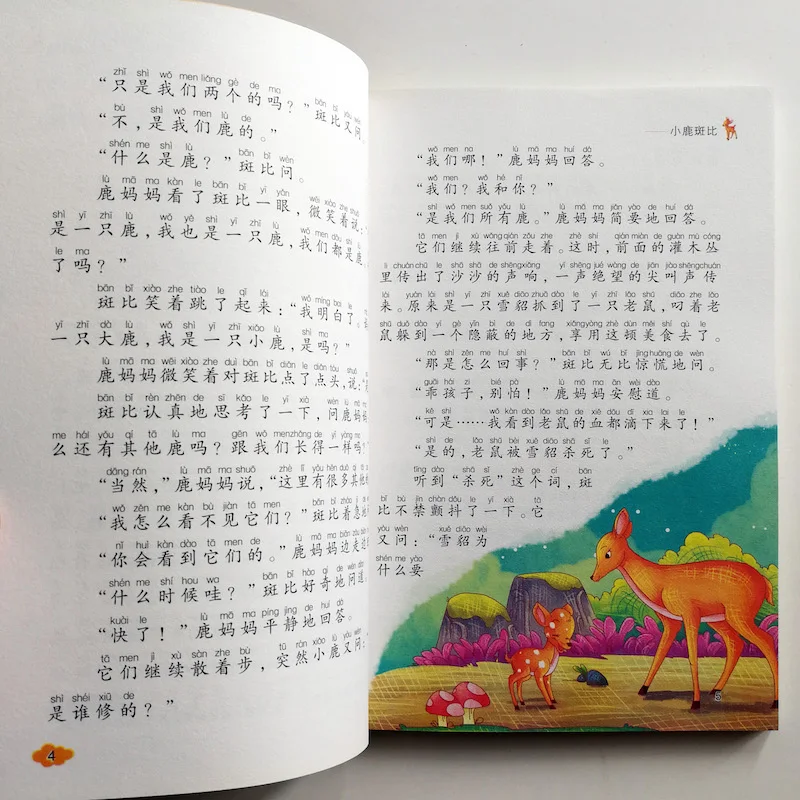 zhǐ shì wǒ men liǎng gè de ma bān bǐ yòu
“只是我们两个的吗？”斑比又问
bù shì wǒ men lù de
“不，是我们鹿的。”
shén me shì lù bān bǐ wèn
“什么是鹿？”斑比问。
lù mā ma kàn le bān bǐ yì yǎn wēi xiào zhe shuō
鹿妈妈看了斑比一眼，微笑着说：
shì yì zhī lù wǒ yě shì yì zhī lù wǒ men dōu shì
是一只鹿，我也是一只鹿，我们都是鹿
le ma
了吗？”
bān bǐ xiào zhe tiào le qǐ lái wǒ míng bai le
斑比笑着跳了起来：“我明白了。
yì zhī dà lù wǒ shì yì zhī xiǎo lù shì ma
一只大鹿，我是一只小鹿，是吗？”
lù mā ma wēi xiào zhe duì bān bǐ diǎn le diǎn tóu shuō
鹿妈妈微笑着对斑比点了点头，说：
bān bǐ rèn zhēn de sī kǎo le yí xià wèn lù mā
斑比认真地思考了一下，问鹿妈妈
me hái yǒu qí tā lù ma gēn wǒ men zhǎng de yí yàng ma
么还有其他鹿吗？跟我们长得一样吗？”
dāng rán lù mā ma shuō zhè lǐ yǒu hěn duō qí
“当然，”鹿妈妈说，“这里有很多其
wǒ zěn me kàn bù jiàn tā men bān bǐ zháo jí
“我怎么看不见它们？”斑比着急
nǐ huì kàn dào tā men de lù mā ma biān zǒu
“你会看到它们的。”鹿妈妈边走
shén me shí hou wa bān bǐ hào qí de wèn dào
“什么时候哇？”斑比好奇地问道。
kuài le lù mā ma píng jìng de huí dá
“快了！”鹿妈妈平静地回答。
tā men jì xù sàn zhe bù tū rán xiǎo lù yòu wèn
它们继续散着步，突然小鹿又问：
shì shéi xiū de
是谁修的？”
4
小鹿斑比
wǒ men na lù mā ma huí dá
“我们哪！”鹿妈妈回答。
wǒ men wǒ hé nǐ
“我们？我和你？”
shì wǒ men suǒ yǒu lù lù mā ma jiǎn yào de huí dá
“是我们所有鹿。”鹿妈妈简要地回答。
tā men jì xù wǎng qián zǒu zhe zhè shí qián miàn de guàn mù cóng
它们继续往前走着。这时，前面的灌木丛
lǐ chuán chū le shā shā de shēng xiǎng yì shēng jué wàng de jiān jiào shēng chuán
里传出了沙沙的声响，一声绝望的尖叫声传
lái yuán lái shì yì zhī xuě diāo zhuā dào le yì zhī lǎo shǔ diāo zhe lǎo
来。原来是一只雪貂抓到了一只老鼠，叼着老
shǔ duǒ dào yí gè yǐn bì de dì fang xiǎng yòng zhè dùn měi shí qù le
鼠躲到一个隐蔽的地方，享用这顿美食去了。
nà shì zěn me huí shì bān bǐ wú bǐ jīng huāng de wèn
“那是怎么回事？”斑比无比惊慌地问。
guāi hái zi bié pà lù mā ma ān wèi dào
“乖孩子，别怕！”鹿妈妈安慰道。
kě shì wǒ kàn dào lǎo shǔ de xiě dōu dī xià lai le
“可是……我看到老鼠的血都滴下来了！”
shì de lǎo shǔ bèi xuě diāo shā sǐ le
“是的，老鼠被雪貂杀死了。”
tīng dào shā sǐ zhè ge cí bān
听到“杀死”这个词，斑
bǐ bù jīn chàn dǒu le yí xià tā
比不禁颤抖了一下。它
yòu wèn xuě diāo wèi
又问：“雪貂为
shén me yào
什么要
5